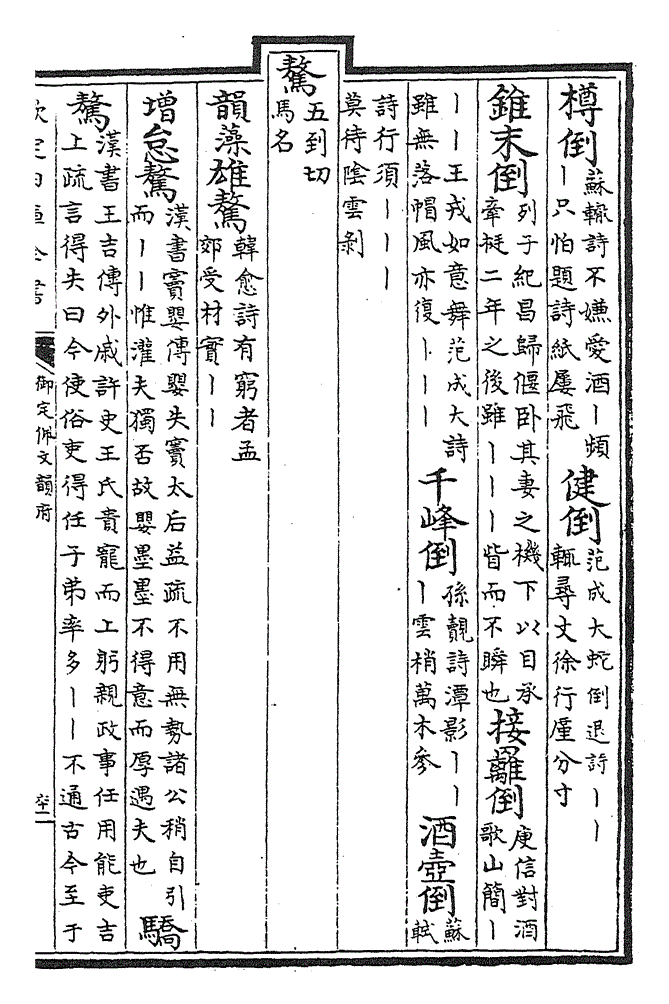 樽倒
蘇轍詩不嫌愛酒丨頻
丨只怕題詩紙屢飛
健倒
范成大蛇倒退詩丨丨
輒尋丈徐行廑分寸
錐末倒
列子紀昌歸偃卧其妻之機下以目承
牽挺二年之後雖丨丨丨眥而不瞬也
接䍦倒
庾信對酒
歌山簡丨
丨丨王戎如意舞范成大詩
雖無落帽風亦復丨丨丨
千峰倒
孫覿詩潭影丨丨
丨雲梢萬木參
酒壺倒
蘇
軾
詩行須丨丨丨
莫待陰雲剝
驁
五到切
馬名
韻藻雄驁
韓愈詩有窮者孟
郊受材實丨丨
增怠驁
漢書竇嬰傳嬰失竇太后益疏不用無勢諸公稍自引
而丨丨惟灌夫獨否故嬰墨墨不得意而厚遇夫也
驕
驁
漢書王吉傳外戚許史王氏貴寵而上躬親政事任用能吏吉
上疏言得夫曰今使俗吏得任子弟率多丨丨不通古今至于
欽定四庫全書
御定佩文韻府